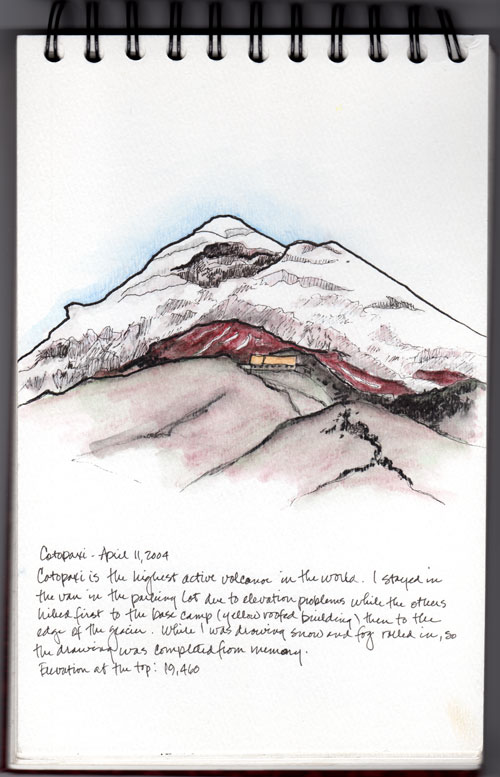 Cotopaxi - April 11, 2004
Cotopaxi is the highest active volcanoe in the world. I stayed in
the van in the parking lot due to elevation problems while the others
hiked first to the base camp (yellow roofed building) then to the
edge of the glacier. While I was drawing snow and fog rolled in, so
the drawing was completed from memory.
Elevation at the top: 19,460